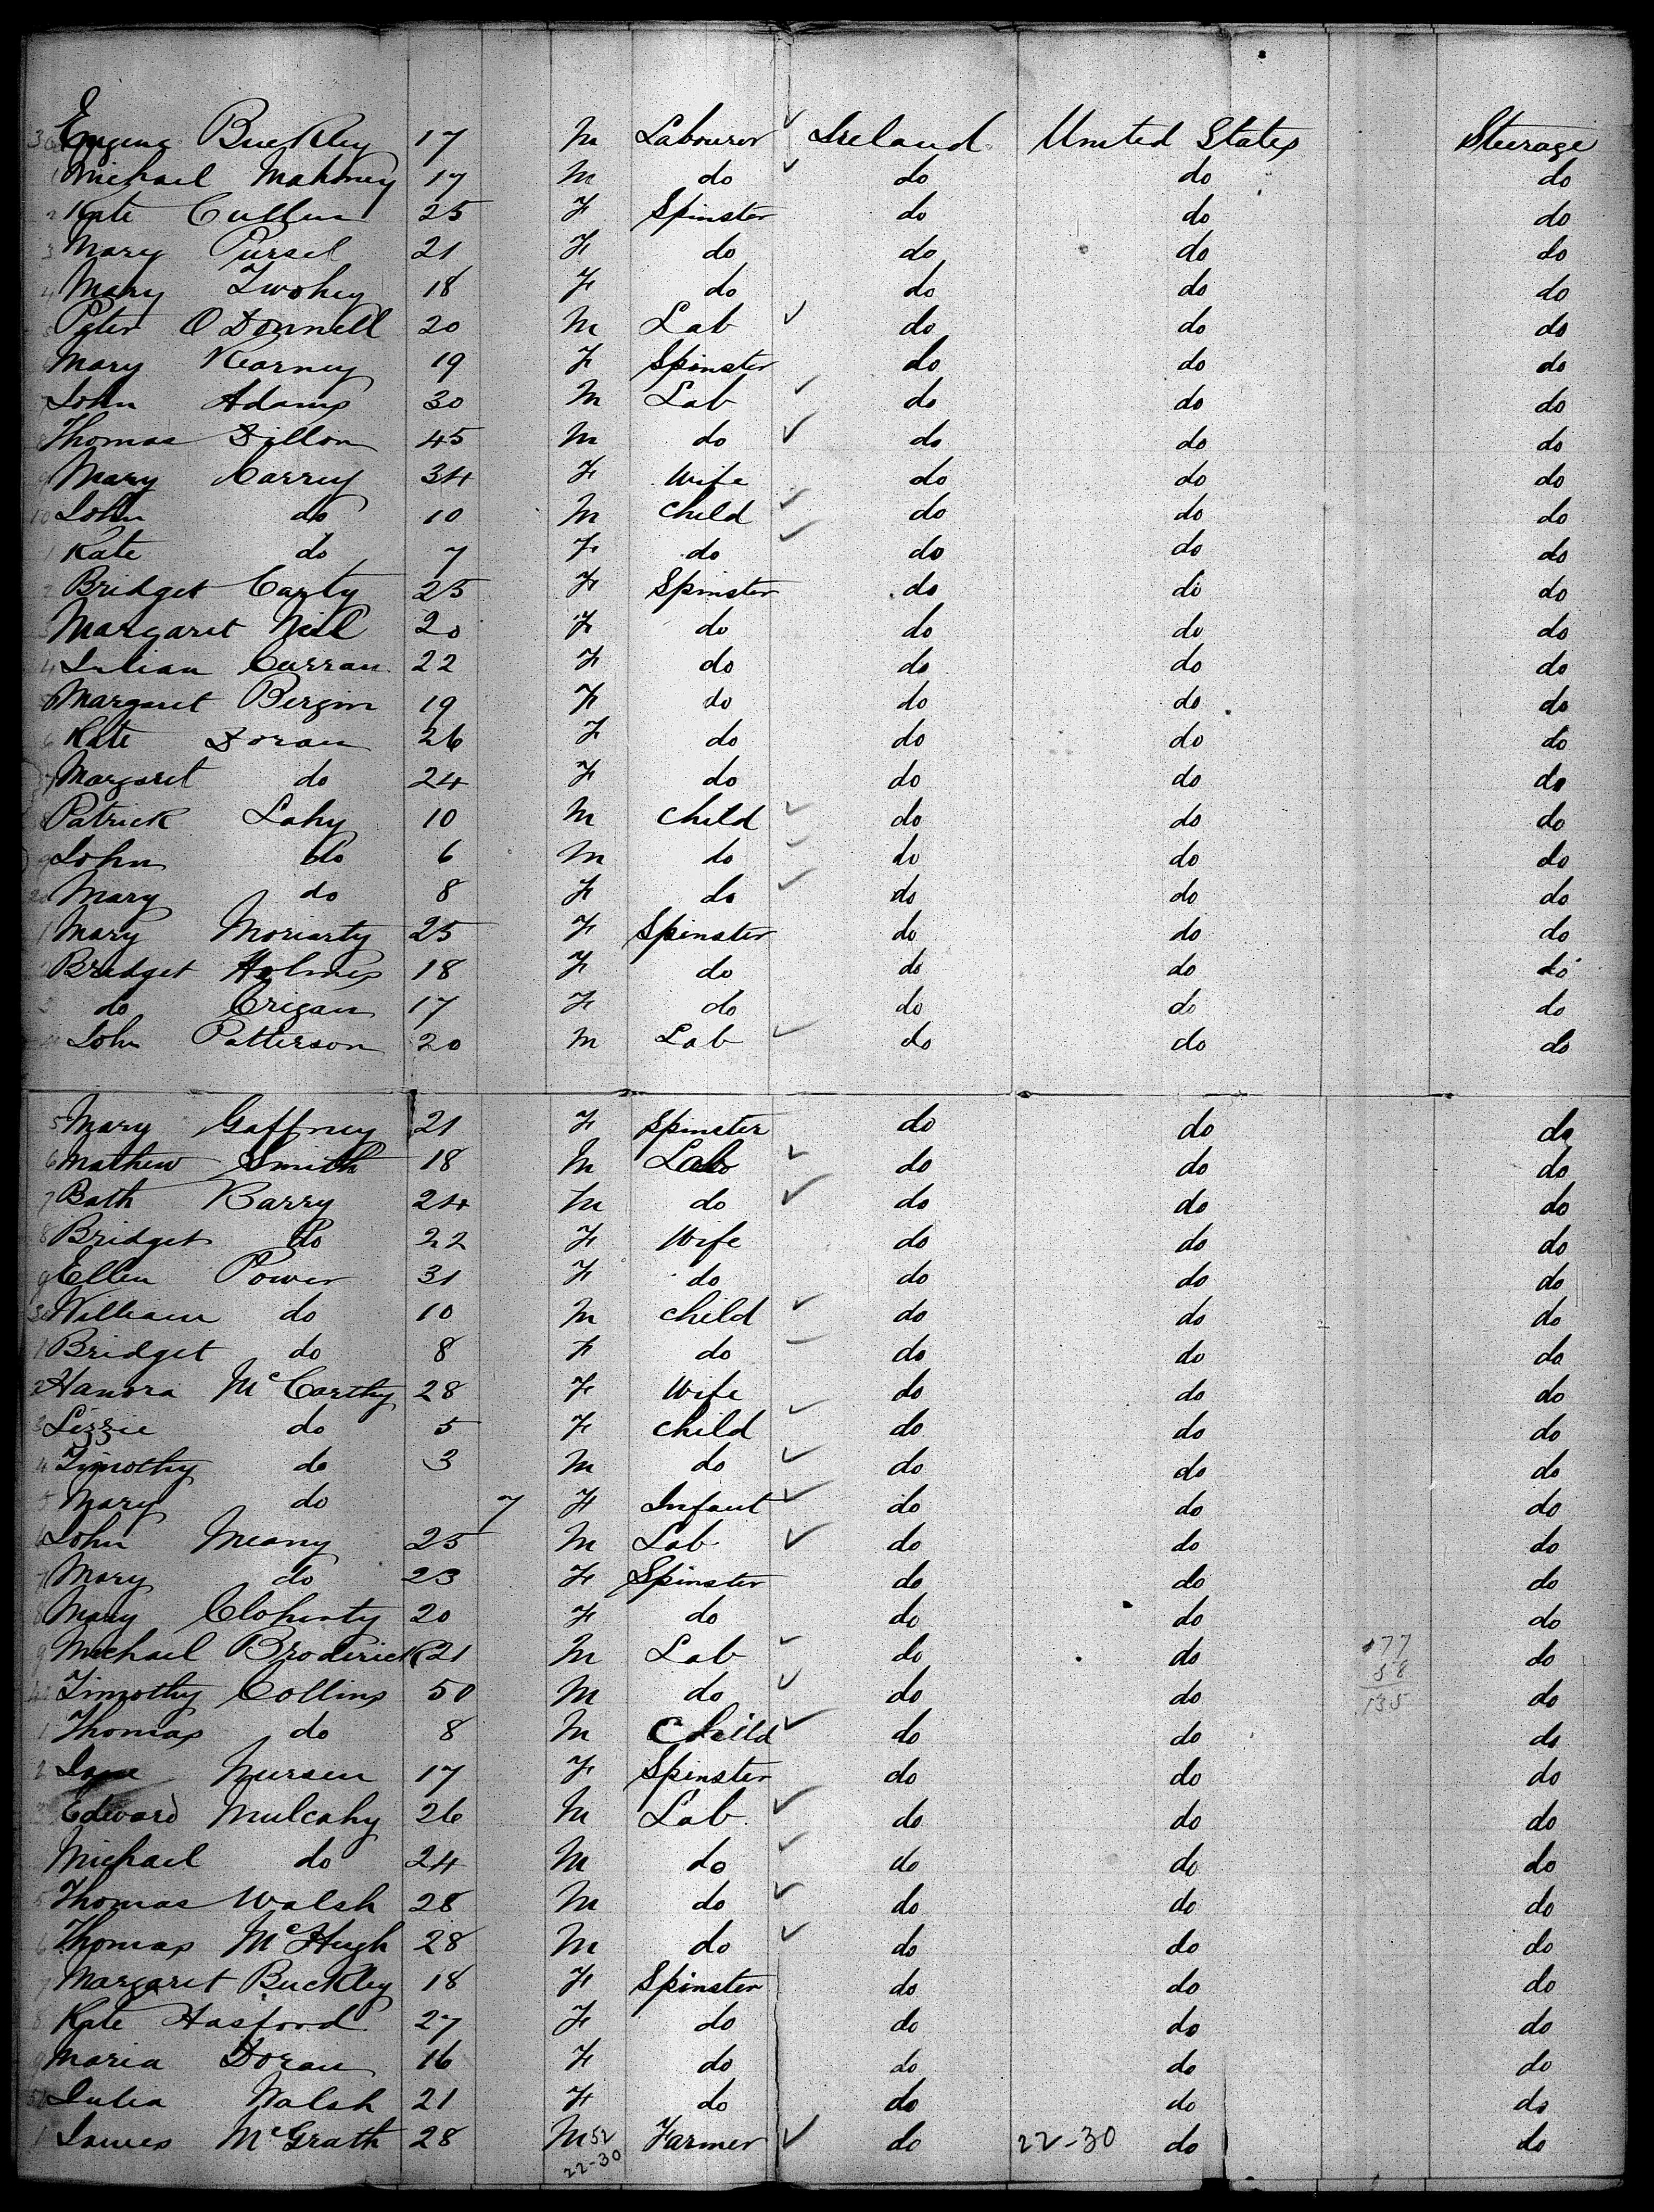 30 Eugene Buckley 17 M Labourer ✓ Ireland United States Steerage
1 Michael Mahoney 17 M do ✓ do do do
2 Kate Cullen 25 F Spinster do do do
3 Mary Pursel 21 F do do do do
4 Mary Twohey 18 F do do do do
5 Peter O Donnell 20 M Lab ✓ do do do
6 Mary Kearney 19 F Spinster do do do
7 John Adams 30 M Lab ✓ do do do
8 Thomas Dillon 45 M do ✓ do do do
9 Mary Carrey 34 F Wife do do do
10 John do 10 M Child ✓ do do do
1 Kate do 7 F do ✓ do do do
2 Bridget Carty 25 F Spinster do do do
3 Margaret Neil 20 F do do do do
4 Julian Curran 22 F do do do do
5 Margaret Bergin 19 F do do do do
6 Kate Doran 26 F do do do do
7 Margaret do 24 F do do do do
8 Patrick Lahy 10 M Child ✓ do do do
9 John do 6 M do ✓ do do do
20 Mary do 8 F do ✓ do do do
1 Mary Moriarty 25 F Spinster do do do
2 Bridget Holmes 18 F do do do do
3 do Crigan 17 F do do do do
4 John Patterson 20 M Lab ✓ do do do
5 Mary Gaffney 21 F Spinster do do do
6 Mathew Smith 18 M Lab ✓ do do do
7 Bath Barry 24 M do ✓ do do do
8 Bridget do 22 F Wife do do do
9 Ellen Power 31 F do do do do
30 William do 10 M Child ✓ do do do
1 Bridget do 8 F do ✓ do do do
2 Hanora McCarthy 28 F Wife do do do
3 Lizzie do 5 F Child ✓ do do do
4 Timothy do 3 M do ✓ do do do
5 Mary do 7 F Infant ✓ do do do
6 John Meany 25 M Lab ✓ do do do
7 Mary do 23 F Spinster do do do
8 Mary Cloherty 20 F do do do do
9 Michael Broderick 21 M Lab ✓ do do 77 do
58
40 Timothy Collins 50 M do ✓ do do 135 do
1 Thomas do 8 M Child ✓ do do do
2 Jane Nursen 17 F Spinster do do do
3 Edward Mulcahy 26 M Lab ✓ do do do
Michael do 24 M do ✓ do do do
5 Thomas Walsh 28 M do ✓ do do do
6 Thomas McHugh 28 M do ✓ do do do
7 Margaret Buckley 18 F Spinster do do do
8 Kate Hasford 27 F do do do do
9 Maria Doran 16 F do do do do
50 Julia Walsh 21 F do do do do
1 James McGrath 28 M 52 Farmer ✓ do 22-30 do do
22-30